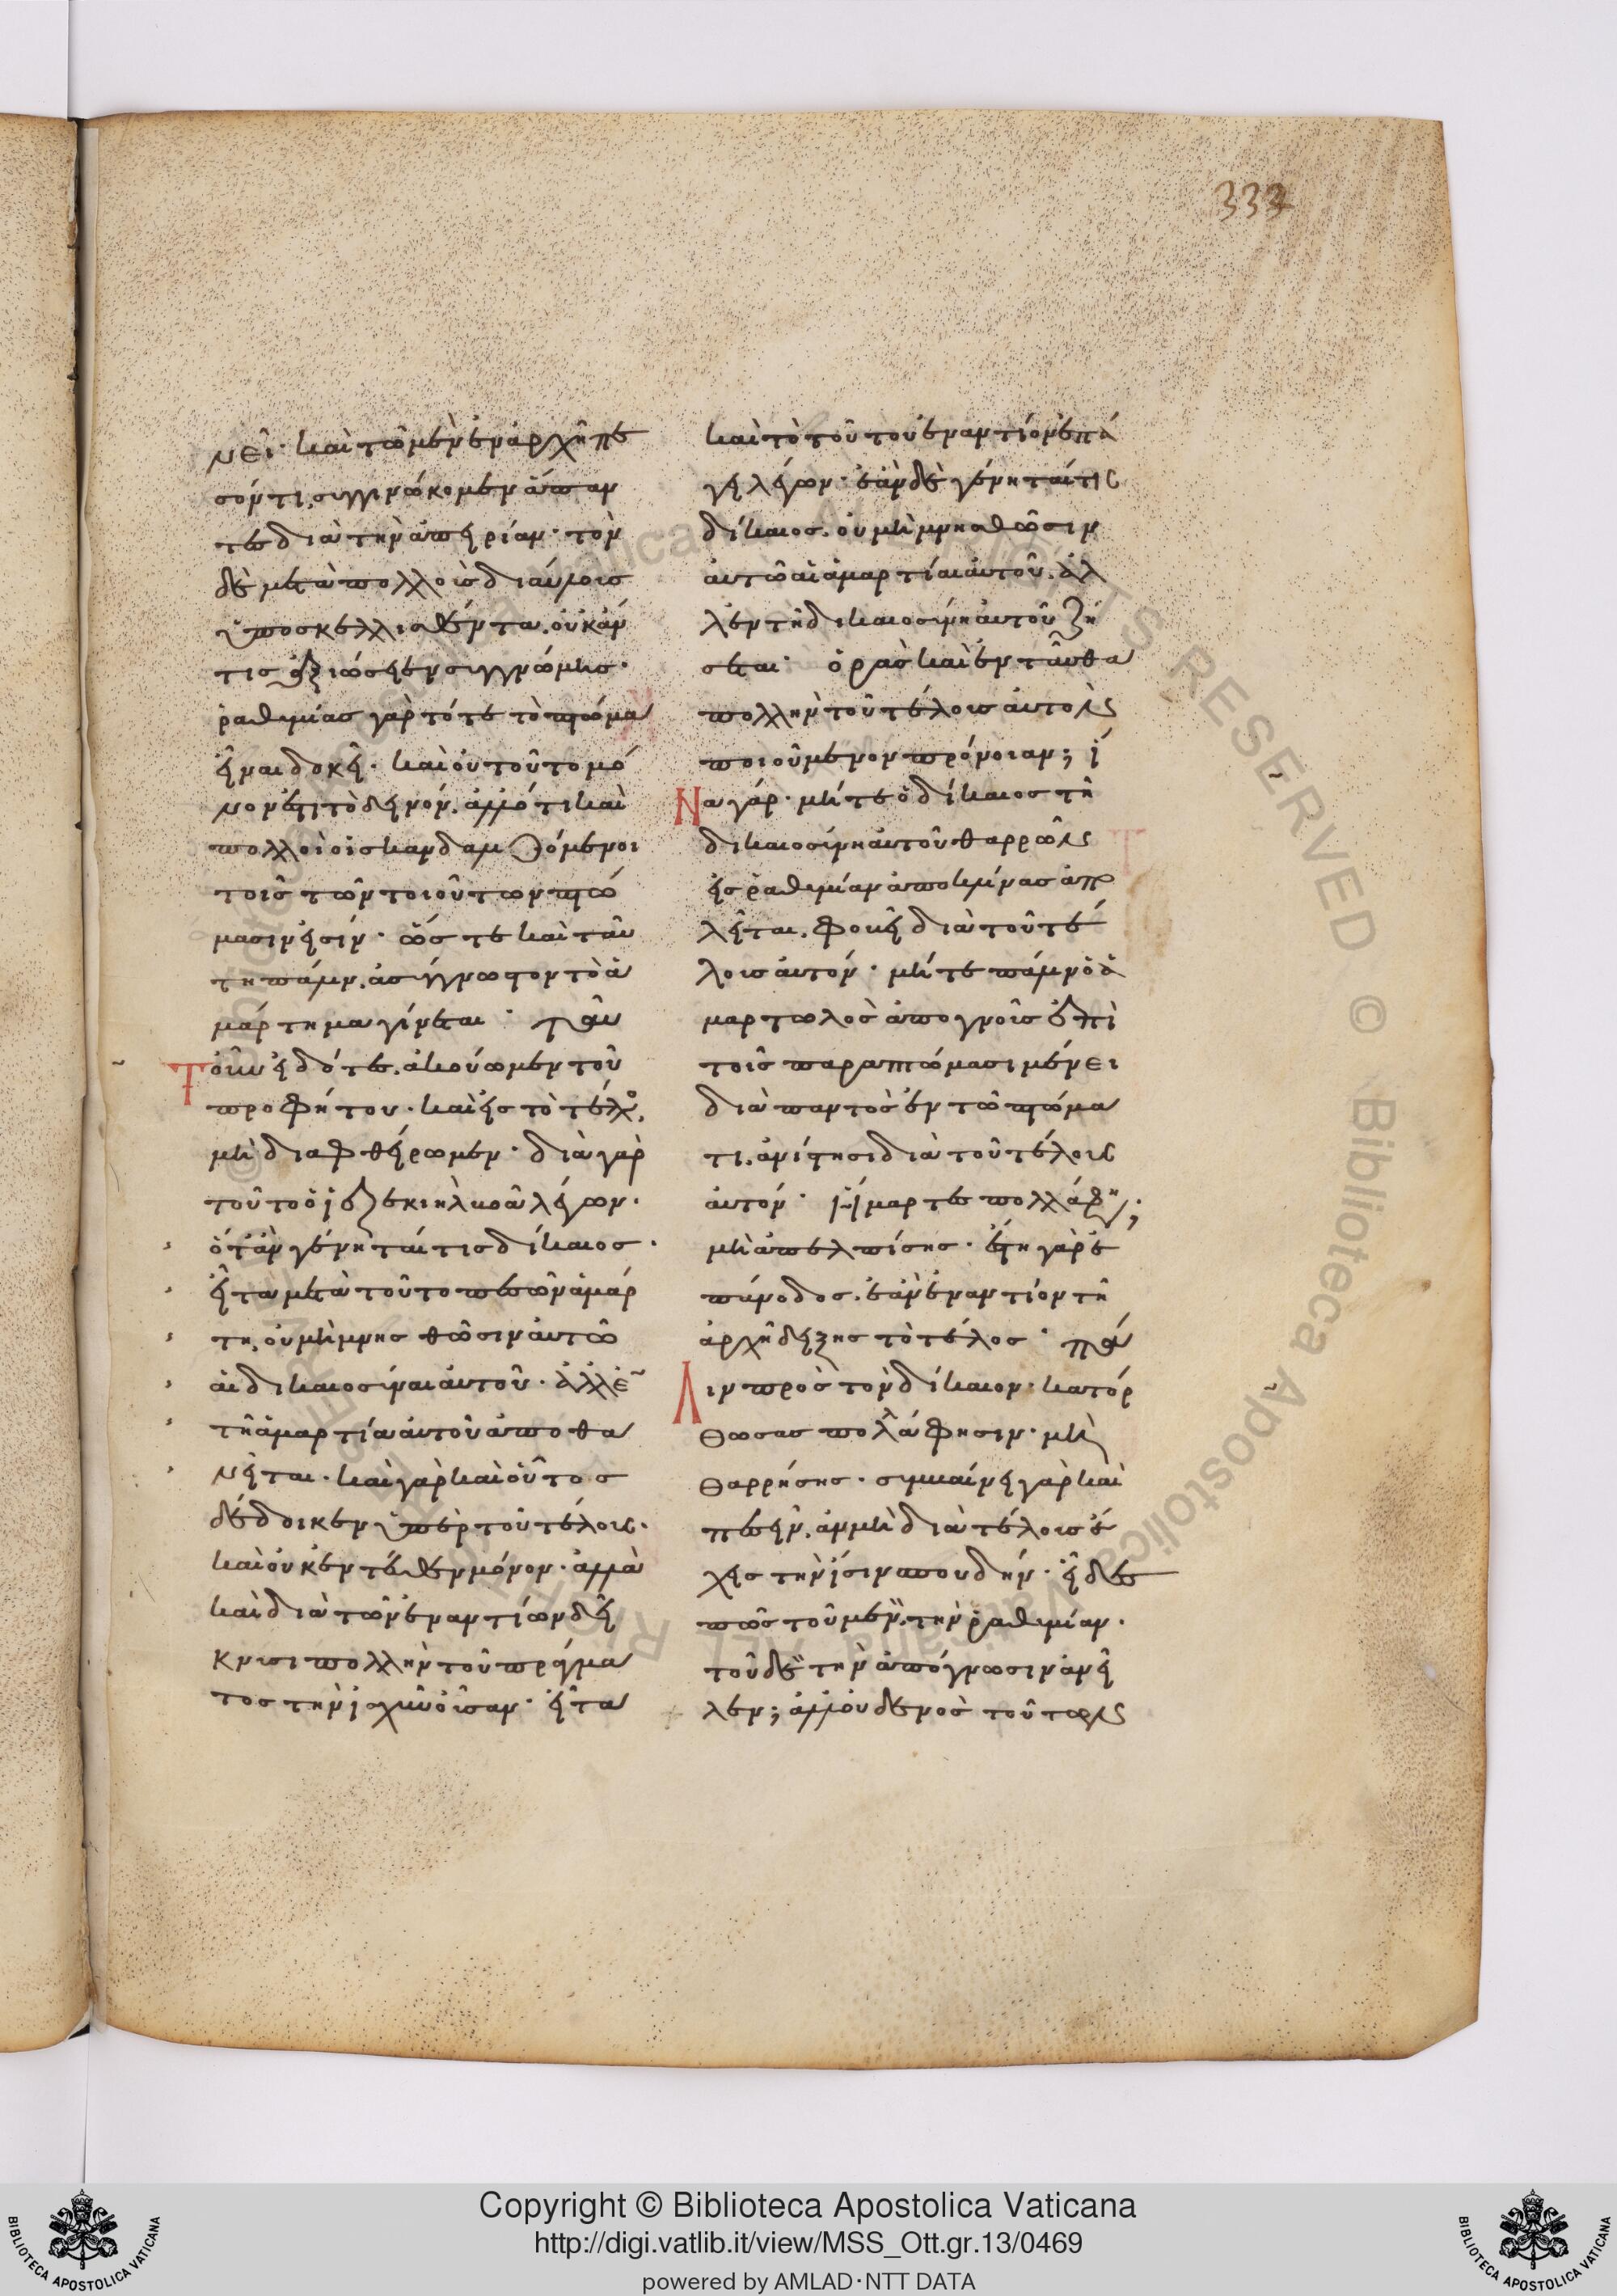 333
νεῖ· καὶ τῶ μὲν ἐν ἀρχῆ πε
σόντι, συγγινώσκομεν ἅπαν
τες διὰ τὴν ἀπειρίαν· τὸν
δὲ μετὰ πολλοὺς διαύλους
ὑποσκελισθέντα, οὐκ ἄν
τις ἀξιώσειεν συγγνώμης·
ῥαθυμίας γὰρ τότε τὸ πτῶμα
εἶναι δοκεῖ· καὶ οὐ τοῦτο μό
νον ἐστὶ τὸ δεινόν, ἀλλ' ὅτι καὶ
πολλοὶ οἱ σκανδαλιζόμενοι
τοῖς τῶν τοιούτων πτώ
μασιν εἰσίν· ὥστε καὶ ταύ
τη πάλιν, ἀσύγγνωστον τὸ ἁ
μάρτημα γίνεται· ταῦτ'
οὖν εἰδότες, ἀκούωμεν τοῦ
προφήτου· καὶ εἰς τὸ τέλος,
μὴ διαφθείρωμεν· διὰ γὰρ
τοῦτο ὁ ἰεζεκιὴλ βοᾶ λέγων·
ὅταν γένηταί τις δίκαιος·
εἶτα μετὰ τοῦτο πεσὼν ἁμάρ
τη, οὐ μὴ μνησθῶσιν αὐτῶ
αἱ δικαιοσύναι αὐτοῦ· ἀλλ' ἐν
τῆ ἁμαρτία αὐτοῦ ἀποθα
νεῖται· καὶ γὰρ καὶ οὗτος
δέδοικεν ὑπὲρ τοῦ τέλους·
καὶ οὐκ ἐντεῦθεν μόνον· ἀλλὰ
καὶ διὰ τῶν ἐναντίων δεί
κνυσι πολλὴν τοῦ πράγμα
τος τὴν ἰσχὺν οὖσαν· εἶτα
καὶ τὸ τούτου ἐναντίον ἐπά
γει λέγων· ἐὰν δὲ γένηταί τις
δίκαιος, οὐ μὴ μνησθῶσιν
αὐτῶ αἱ ἁμαρτίαι αὐτοῦ, ἀλ
λ' ἐν τῆ δικαιοσύνη αὐτοῦ ζή
σεται· ὁρᾶς καὶ ἐνταῦθα
πολλὴν τοῦ τέλους αὐτὸν
ποιούμενον πρόνοιαν; ἵ
να γὰρ μήτε ὁ δίκαιος τῆ
δικαιοσύνη αὐτοῦ θαρρῶν
εἰς ῥαθυμίαν ἀποκλίνας ἀπο
λεῖται, φοβεῖ διὰ τοῦ τέ
λους αὐτόν· μήτε πάλιν ὁ ἁ
μαρτωλὸς ἀπογνοὺς ἐπὶ
τοῖς παραπτώμασι μένει
διὰ παντὸς ἐν τῶ πτώμα
τι, ἀνίστησι διὰ τοῦ τέλους
αὐτόν· ἥμαρτες πολλὰ φησι;
μὴ ἀπελπίσης· ἔστι γὰρ ἐ
πάνοδος, ἐὰν ἐναντίον τῆ
ἀρχῆ δείξης τὸ τέλος· πά
λιν πρὸς τὸν δίκαιον· κατόρ
θωσας πολλά φησιν· μὴ
θαρρήσης· συμβαίνει γὰρ καὶ
πεσεῖν, ἂν μὴ διὰ τέλους ἔ
χης τὴν ἴσην σπουδήν· εἶδες
πῶς τοῦ μὲν τὴν ῥαθυμίαν·
τοῦ δὲ τὴν ἀπόγνωσιν ἀνεῖ
λεν; ἀλλ' οὐδενὸς τούτων
Copyright © Biblioteca Apostolica Vaticana
http://digi.vatlib.it/view/MSS_Ott.gr.13/0469
powered by AMLAD·NTT DATA
BIBLIOTECA APOSTOLICA VATICANA
BIBLIOTECA APOSTOLICA VATICANA